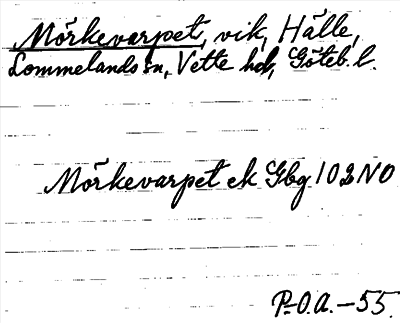 Mörkevarpet, vik, Hälle,
Lommelands sn, Vette hd, Göteb. l.
Mörkevarpet ek Gbg 102 NO
P-O.A. - 55.